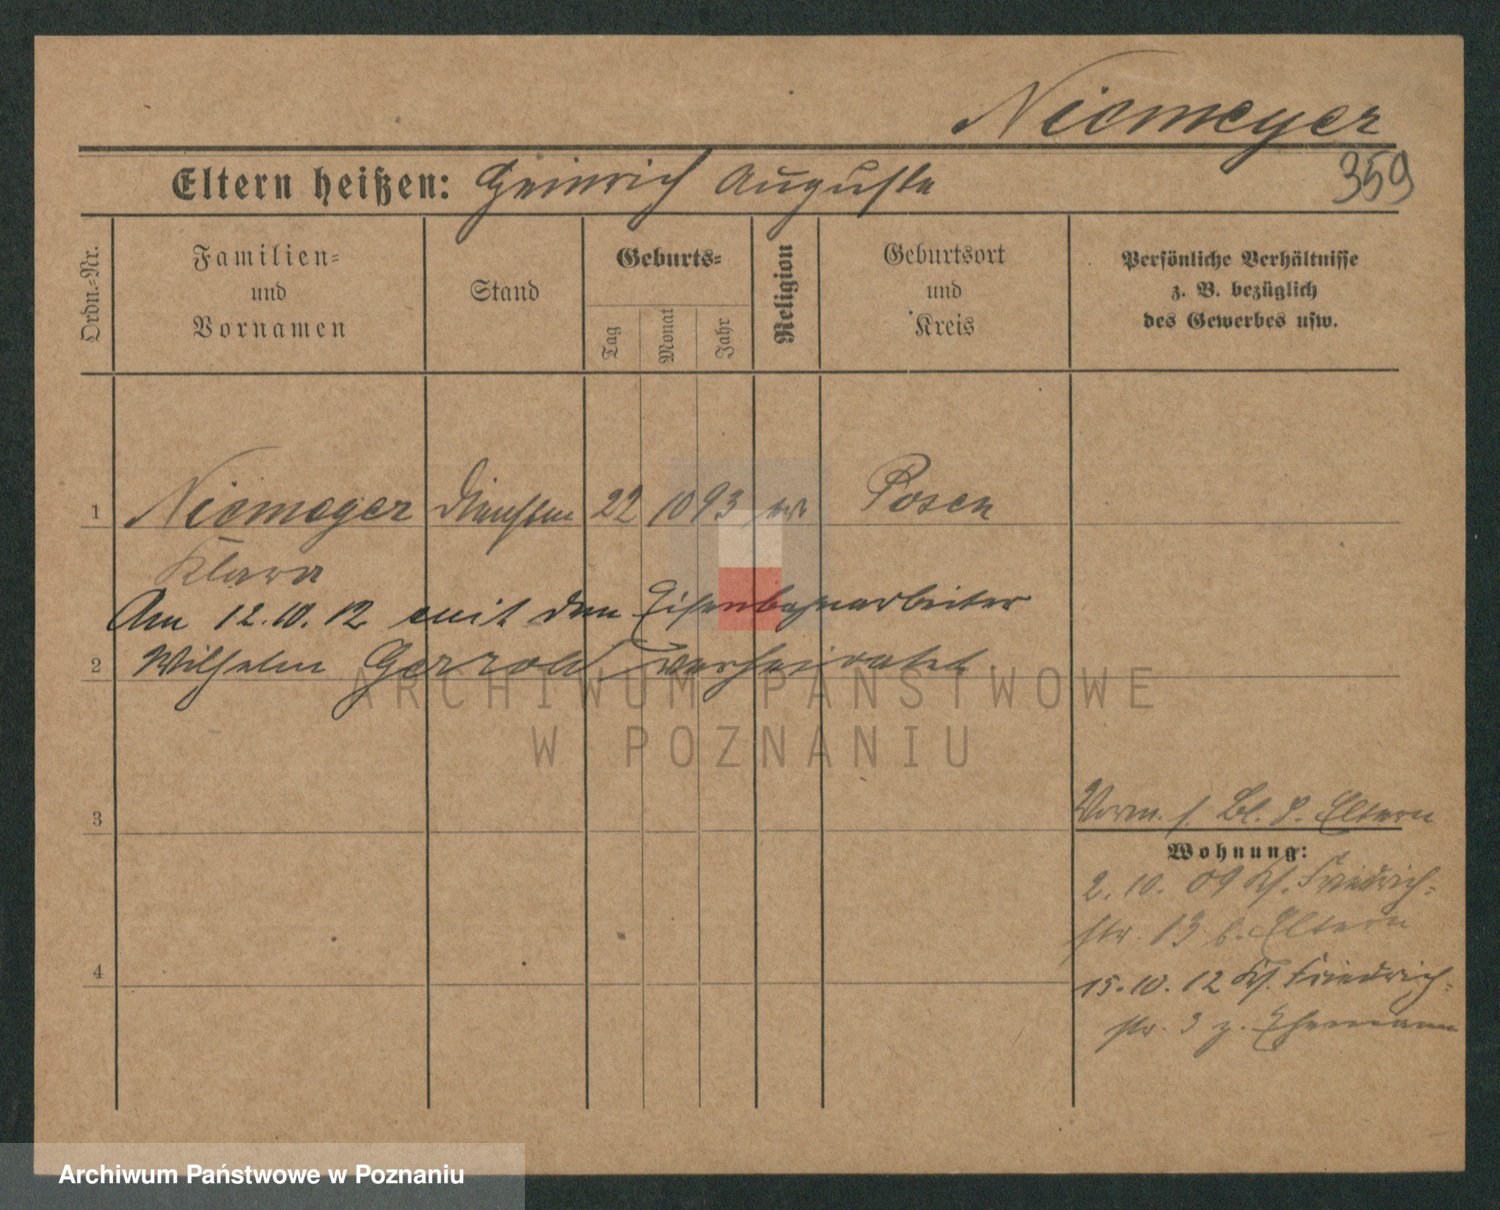 Niemeyer
359
Eltern heißen: Heinrich Auguste
Ordn.-Nr.
Familien-
und
Vornamen
Stand
Geburts-
Tag
Monat
Jahr
Religion
Geburtsort
und
Kreis
Persönliche Verhältnisse
z. B. bezüglich
des Gewerbes usw.
1 Niemeyer 22 10 93 ev Posen
Klara
Am 12.10.12 mit dem Eisenbahnarbeiter
2 Wilhelm verheiratet
ARCHIWUM PAŃSTWOWE
W POZNANIU
3
Vorm. s. Bl. d. Eltern
Wohnung:
2.10.09 Kf. Friedrich-
str. 13 b. Eltern
4
15.10.12 Kf. Friedrich-
str. 3 z. Ehemann
Archiwum Państwowe w Poznaniu